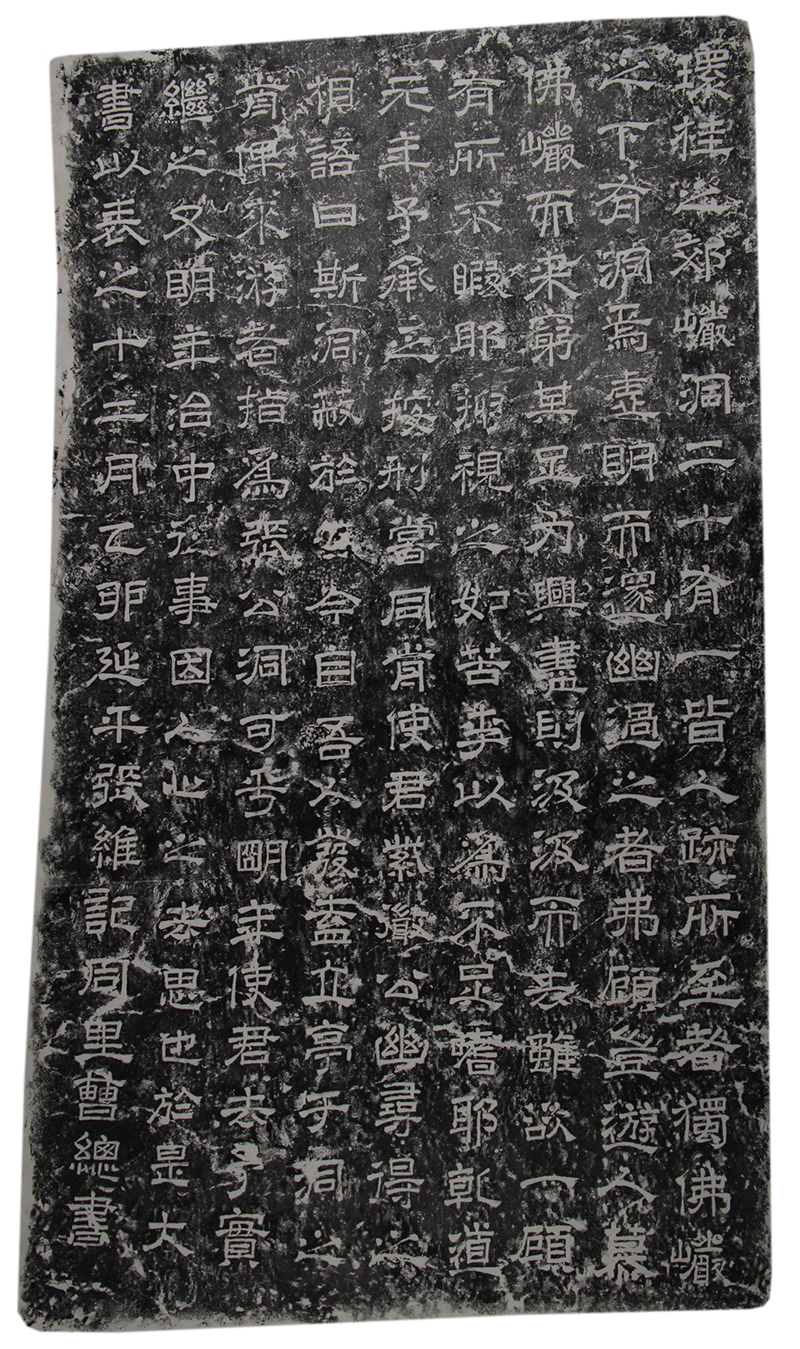 環桂之郊巖洞二十有一皆人跡所至者獨佛巖
之下有洞焉虛明而深幽過之者弗顧豈遊人慕
佛巖而來窮其足力興盡則汲汲而去雖欲一顧
有所不暇耶抑視之如苦李以為不足嗜耶乾道
元年予承乏按刑嘗同前使君紫微公幽尋得之
相語曰斯洞蔽於古今自吾人發盍立亭于洞之
前俾來游者指為張公洞可乎明年使君去予實
繼之又明年治中從事因人心之去思也於是大
書以表之十二月乙卯延平張維記同里曹總書